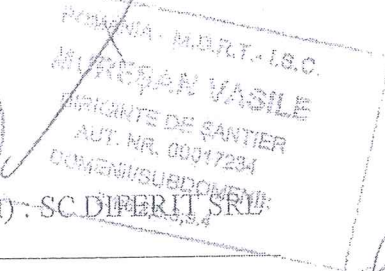 ROMÂNIA - M.D.R.T. - I.S.C.
MUREŞAN VASILE
DIRIGINTE DE ŞANTIER
AUT. NR. 00017234
DOMENII/SUBDOMENII:
) . SC DIFERIT SRL